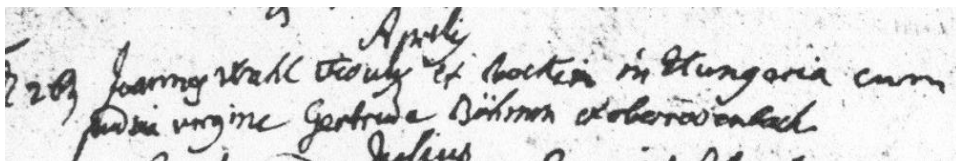 Aprilis
Joannes Wahl viduus ex in Hungaria cum
pudica virgine Gertrude Böhmin ex oberrodenbach
Julius